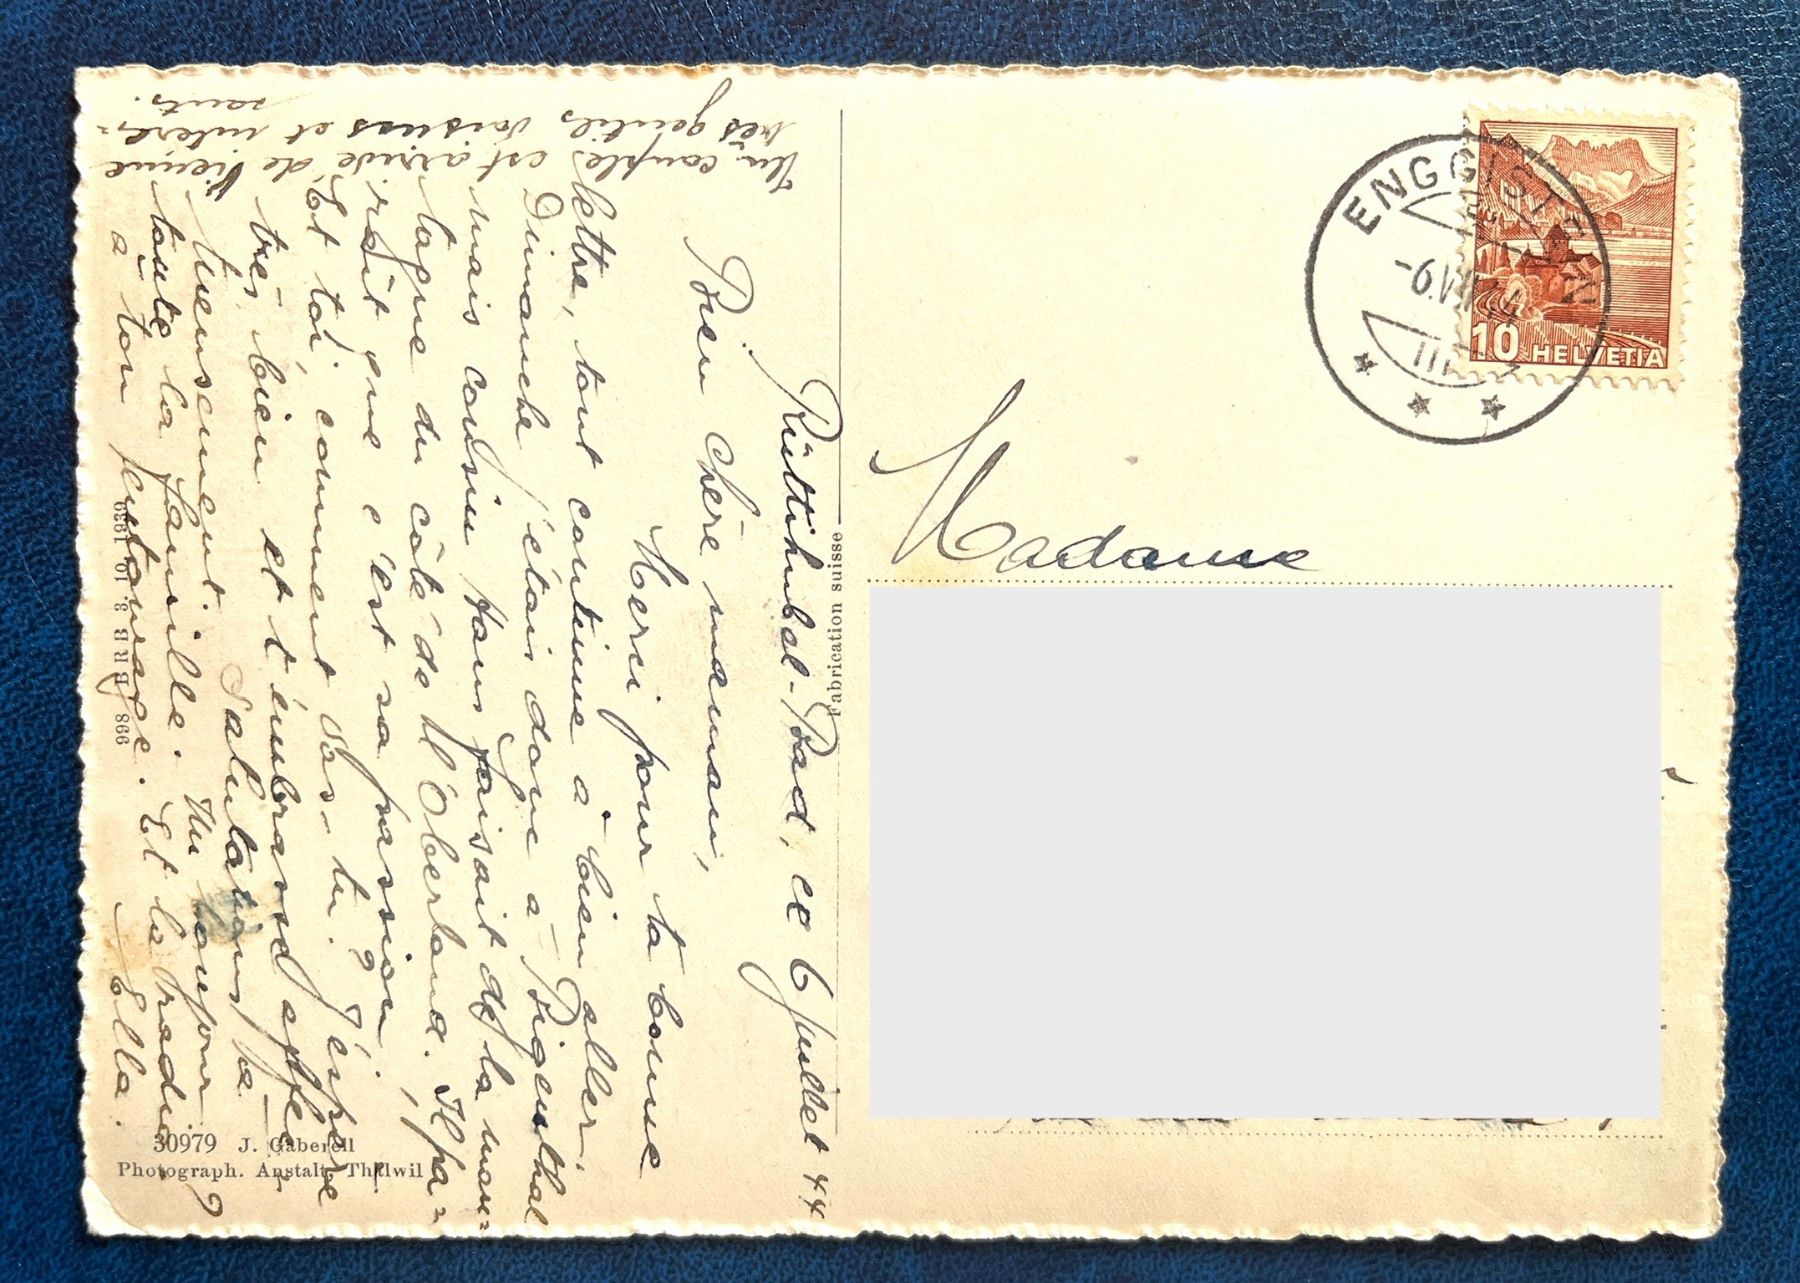 Rüttihubel-Bad, ce 6 juillet 44
Bien chère maman,
Merci pour ta bonne
lettre, tout continue à bien aller.
Dimanche j'étais donc à Bigenthal
mais cousin Hans faisait de la mon=
tagne du côté de l'Oberland. Il pa=
raît que c'est sa passion!
Et toi comment vas-tu? J'espère
très bien et t'embrasse affec-
tueusement. Salutations à
toute la famille. Un bonjour
à ton entourage. Et la radio?
Ella.
Un couple est arrivé de Vienne
très gentils voisins et intéres=
sants.
998 B R B 3. 10. 1939
30979 J. Gaberell
Photograph. Anstalt, Thalwil
Fabrication suisse
Madame
ENGGISTEIN
-6.VII.44
10 HELVETIA